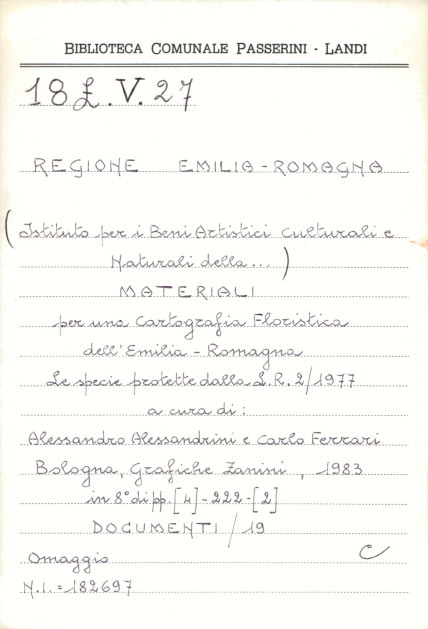 BIBLIOTECA COMUNALE PASSERINI - LANDI
18 £.V.27
REGIONE EMILIA-ROMAGNA
(Istituto per i Beni Artistici Culturali e
Naturali della...)
MATERIALI
per una Cartografia Floristica
dell'Emilia-Romagna
Le specie protette dalla L.R. 2/1977
a cura di:
Alessandro Alessandrini e Carlo Ferrari
Bologna, Grafiche Zanini, 1983
in 8° di pp. [4]-222-[2]
DOCUMENTI/19
Omaggio C
N.I.=182697